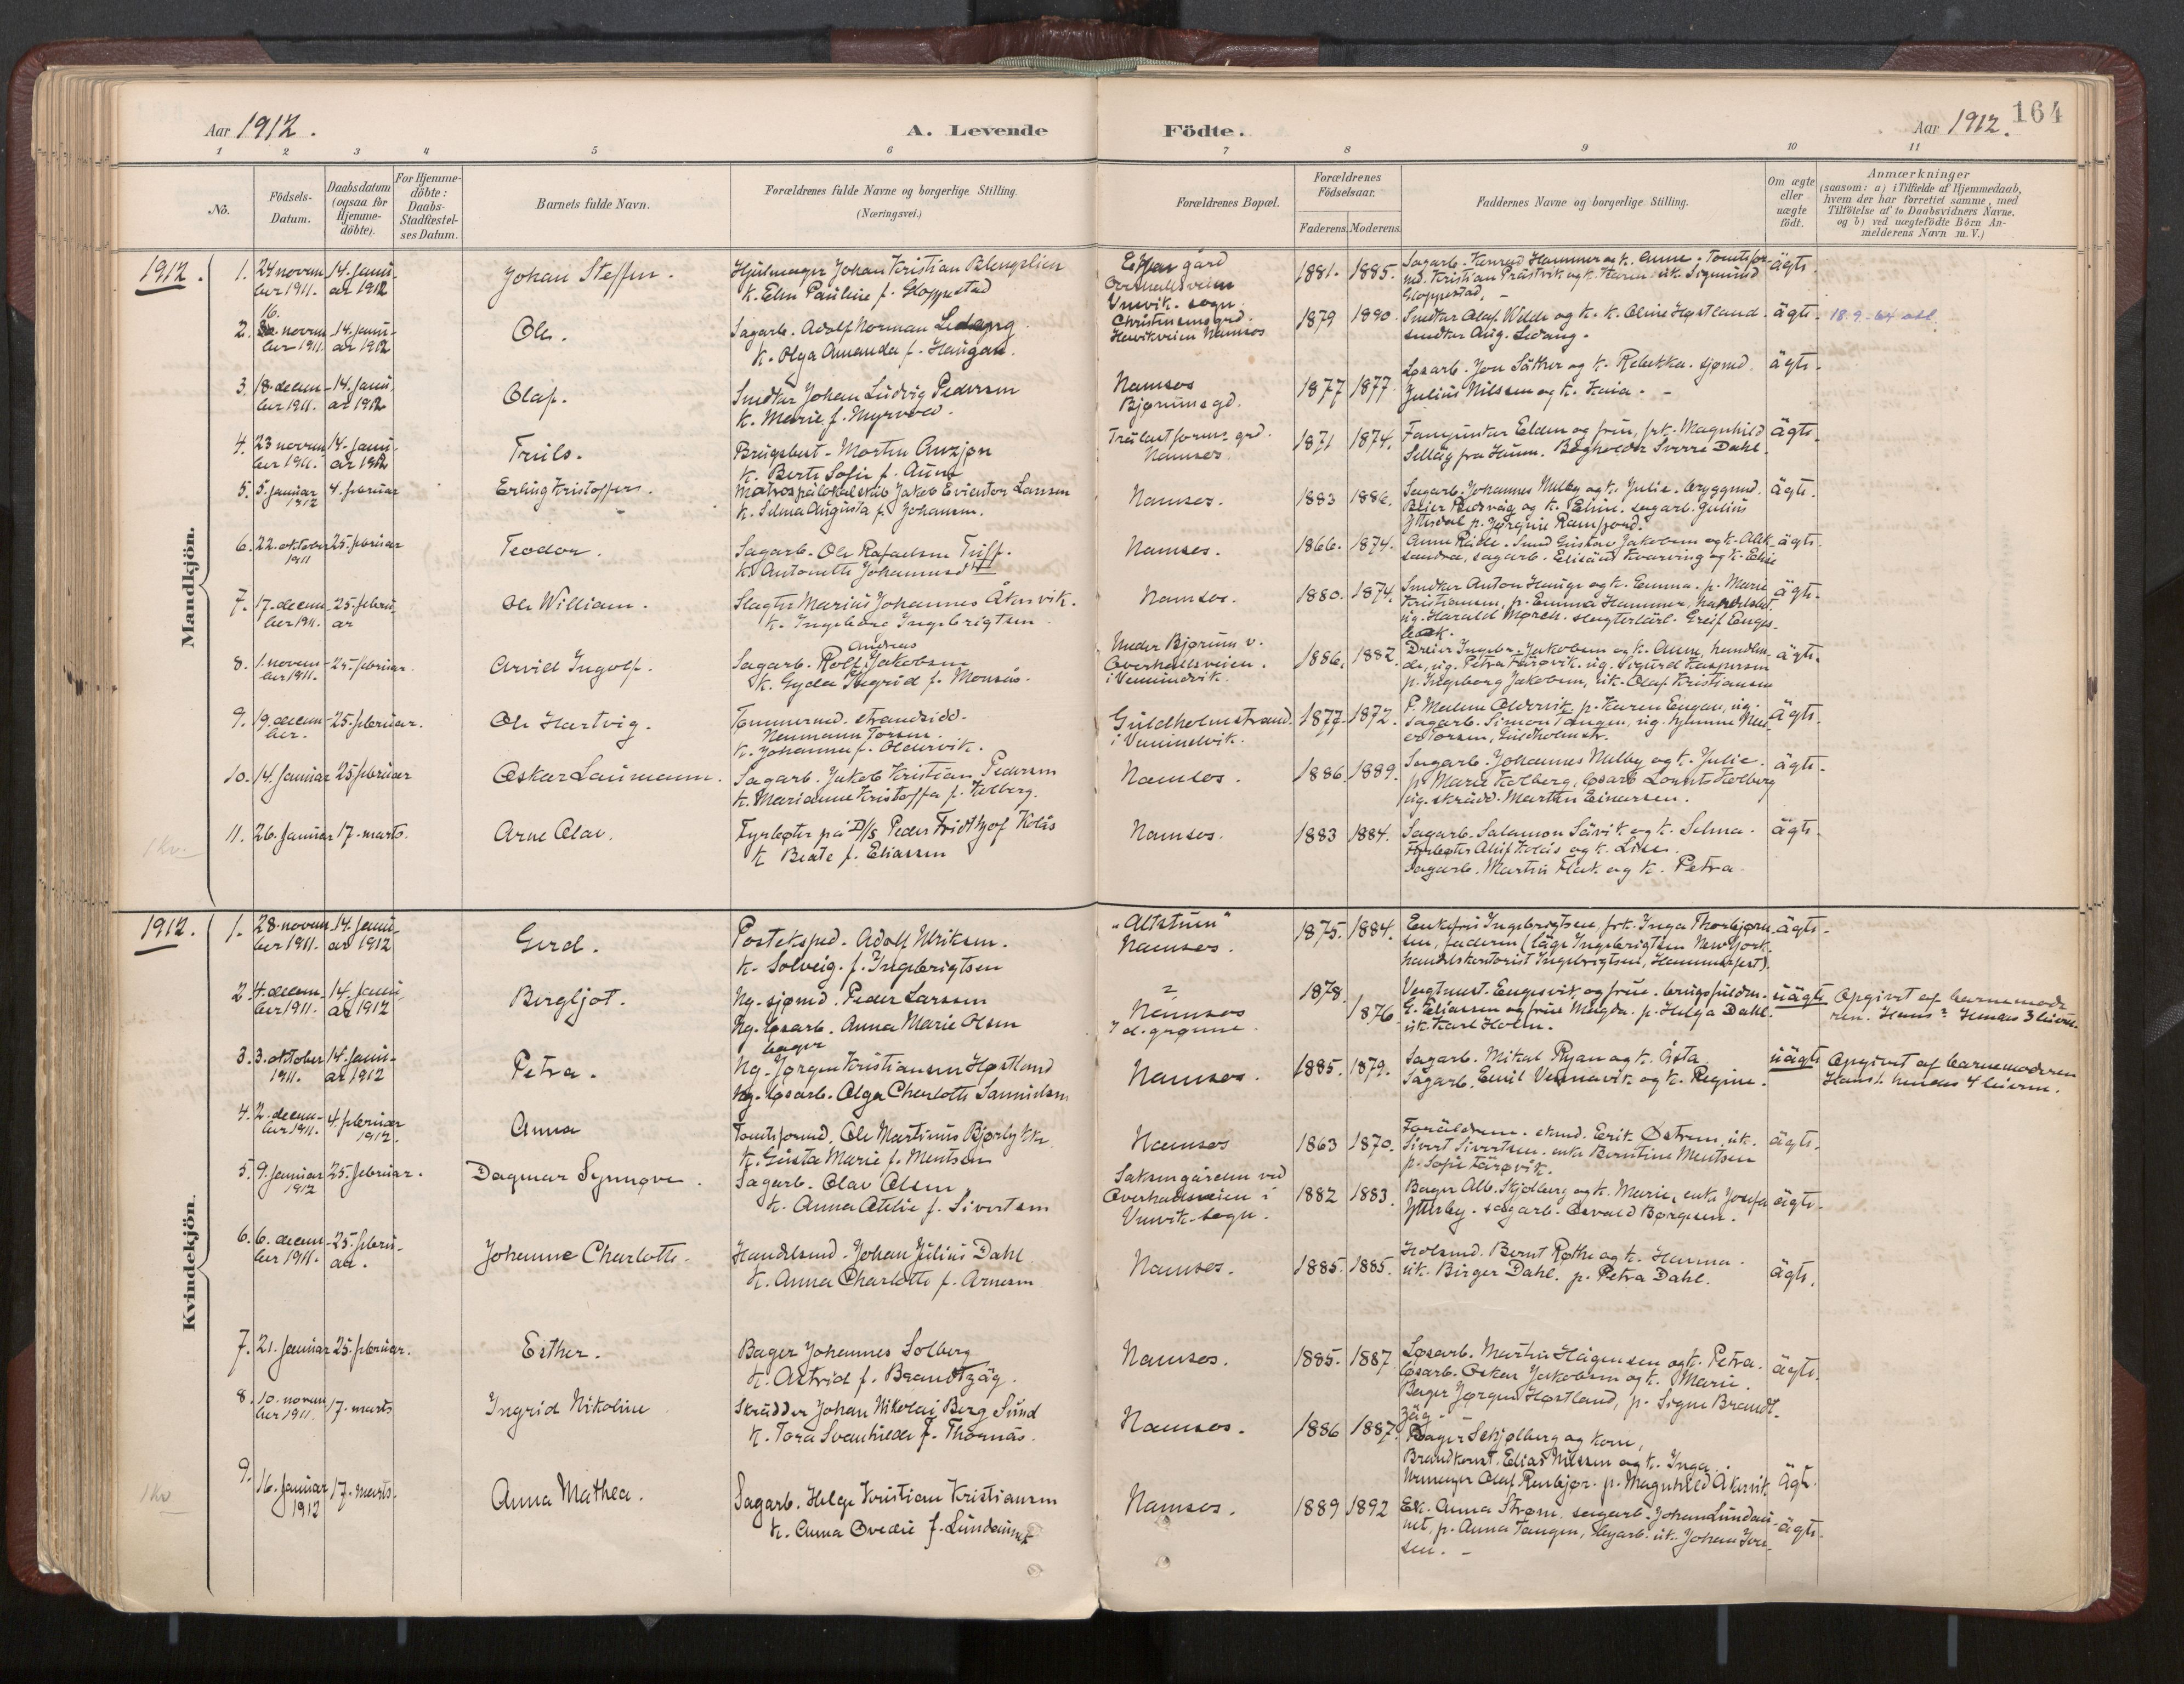 Aar 1912.
A. Levende
Födte.
Aar 1912.
164
1 2 3 4 5 6 7 8 9 10 11
No.
Födsels-
Datum.
Daabsdatum
(ogsaa for
Hjemme-
döbte).
For Hjemme-
döbte:
Daabs-
Stadfæstel-
ses Datum.
Barnets fulde Navn.
Forældrenes fulde Navne og borgerlige Stilling.
(Næringsvei.)
Forældrenes Bopæl.
Forældrenes
Födselsaar.
Faderens. Moderens.
Faddernes Navne og borgerlige Stilling.
Om ægte
eller
uægte
födt.
Anmærkninger
(saasom: a) i Tilfælde af Hjemmedaab,
hvem der har forrettet samme, med
Tilföielse af to Daabsvidners Navne,
og b) ved uægtefödte Börn An-
melderens Navn m. V.)
Mandkjön.
1912.
1. 24 novem-
ber 1911.
14. janu-
ar 1912
Johan Steffen.
Hjulmager Johan Kristian
K. Elen Pauline f. Gloppestad
Overhallsveien
Vemvik. sogn.
1881. 1885.
Sagarb. Konrad Hammer og k. Anne, Tomtefor-
md. Kristian Prästvik og k. Karen. uk. Sigmund
Gloppestad.
ägte.
2. 16. novem-
ber 1911.
14. janu-
ar 1912
Ole.
Sagarb. Adolf Norman Ledang
K. Olga Amanda f. Haugan.
Christensensgrd.
Havikveien Namsos
1879 1890.
Snedker Olaf Welde og k. k. Oline Høstland.
snedker Aug. Ledang.
ägte. 18.9.64 att.
3. 18. decem-
ber 1911.
14. janu-
ar 1912
Olaf.
Snedker Johan Ludvig Pedersen
K. Marie f. Myrvold.
Namsos
Bjørumsgd.
1877 1877.
Løsarb. Jon Säther og k. Rebekka. sjømd.
Julius Nilssen og k. Kaia.
ägte.
4. 23 novem-
ber 1911.
14. janu-
ar 1912
Truls.
Brugsbest. Morten Auzjøn
K. Berte Sofie f. Aune
Trälastforens grd.
Namsos
1871 1874.
Fanejunker Elden og frue, frk. Magnhild
Selläg fra Huun. Bogholder Sverre Dahl.
ägte.
5. 5. januar
1912
4. februar
Erling Kristoffer.
Matros på lokalskib Jakob Evientor Larsen
K. Selma Augusta f. Johansen.
Namsos.
1883 1886.
Sagarb. Johannes Melby og k. Julie. bryggmd.
Peier Rødvaag og k. Eline. sagarb. Julius
Ytterdal p. Jørgine Ramfjord.
ägte.
6. 22. oktober
1911
25. februar
Teodor.
Sagarb. Ole Rafaelsen
K. Antonette Johannesd.
Namsos.
1866. 1874.
Anne Reitle. Smed Gustav Jakobsen og k. Alek-
sandra, sagarb. Elisäus Kvarving og k. Elise
ägte.
7. 17. decem-
ber 1911.
25. febru-
ar
Ole William.
Slagter Marius Johannes Åkervik.
K. Ingeborg Ingebrigtsen
Namsos.
1880. 1874.
Snedker Anton Hauge og k. Emma. p. Marie
Kristiansen, p. Emma Hammer, handelsbet.
ug. Harald Mørch. slagterlärl. Greif Enges-
bak.
ägte.
8. 1. novem-
ber 1911
25. februar.
Arvid Ingolf.
Andreas
Sagarb. Rolf Jakobsen
K. Gyda Ingrid f. Monsås.
Neder Bjørum v.
Overhallsveien.
i Vemundvik.
1886. 1882.
Dreier Ingebr. Jakobsen og k. Anne, handlen-
de, ug. Petra Färøvik. ug. Sigurd Kaspersen
p. Ingeborg Jakobsen, uk. Olaf Kristiansen
ägte.
9. 19. decem-
ber.
25. februar.
Ole Hartvig.
Tømmermd. strandsidd.
Neumann Torsen.
K. Johanna f. Oldervik.
Guldholmstrand.
i Vemundvik.
1877. 1872.
P. Meline Oldervik p. Karen Engan, ug.
Sagarb. Simon Tangen, ug. hjemme
Torsen, Guldholmstr.
ägte.
10. 14. januar 25 februar
Oskar Laumann.
Sagarb. Jakob Kristian Pedersen
K. Marianne Kristoffa f. Kolberg.
Namsos.
1886. 1889.
Sagarb. Johannes Melby og k. Julie.
p. Marie Kolberg, løsarb Lorents Kolberg
ug. skrädd. Marthin Einarsen.
ägte.
1 kv.
11. 26. januar 17. marts.
Arne Olav.
Fyrbøter på D/S Peder Fridthjof Kolås
K. Beate f. Eliassen
Namsos.
1883 1884.
Sagarb. Salamon Sävik og k. Selma.
Fyrbøter Alif Kolås og k. Lise.
Sagarb. Martin Flak og k. Petra
ägte.
Kvindekjön.
1912.
1. 28. novem-
ber 1911.
14. janu-
ar 1912
Gerd.
Postekspd. Adolf Ulriksen.
K. Solveig. f. Ingebrigtsen
"Altstuen"
Namsos.
1875. 1884.
Enkefru Ingebrigtsen, frk. Inga Thorbjørn-
sen, faderen (läge Ingebrigtsen New York.
handelskontorist Ingebrigtsen, Hammerfest).
ägte.
2. 4. decem-
ber 1911.
14. janu-
ar 1912
Bergljot.
Ug. sjømd. Peder Larssen
Ug. løsarb. Anna Marie Olsen
?
Namsos
1878. 1876.
Vergtmest. Engesvik og frue. brugsfuldm.
G. Eliassen og frue Magda. p. Helga Dahl.
uk. Karl Holm.
uägte
Opgivet af barnemode-
ren. Hans ? Hendes 3 leierm.
3. 3. oktober
1911.
14. janu-
ar 1912
Petra.
bager
Ug. Jørgen Kristiansen Høstland
Ug. løsarb. Olga Charlotte Samuelsen
Namsos.
1885. 1879.
Sagarb. Mikal Ryan og k. Åsta.
Sagarb. Emil Vennevik og k. Regine.
uägte
Opgivet af barnemoderen
Hans 1. hendes 4 leierm.
4. 2. decem-
ber 1911.
4. februar
1912.
Anna
Tomteformd. Ole Martinus Bjørlykke
K. Gusta Marie f. Mentsen
Namsos
1863 1870.
Foräldrene. skmd. Erik Østrem, uk.
Sivert Sivertsen. enke Berntine Mentsen
p. Sofie Färøvik.
ägte.
5. 9. januar
1912
25. februar.
Dagmar Synnøve.
Sagarb. Olav Olsen
K. Anna Otelie f. Sivertsen
Saksengården ved
Overhallsveien i
Vemvik. sogn.
1882 1883.
Bager Alb. Skjølberg og k. Marie, enke Josefa
Ytterby. sagarb. Osvald Børgesen.
ägte.
6. 6. decem-
ber 1911.
25. febru-
ar.
Johanne Charlotte.
Handelsmd. Johan Julius Dahl
K. Anna Charlotte f. Arnesen
Namsos.
1885. 1885.
Holsmd. Bernt Røthe og k. Hanna.
uk. Birger Dahl. p. Petra Dahl.
ägte.
7. 21. januar 25. februar.
Esther.
Bager Johannes Solberg
K. Astrid f. Brandtzäg.
Namsos.
1885. 1887
Løsarb. Martin Hågensen og k. Petra.
løsarb. Oskar Jakobsen og k. Marie.
Bager Jørgen Høstland, p. Signe Brandt-
zäg.
ägte.
8. 10. novem-
ber 1911.
17. marts
Ingrid Nikoline
Skrädder Johan Nikolai Berg Sund
K. Tora Svanhilda f. Thornäs.
Namsos.
1886 1887.
Bager Schjølberg og kone,
Brandkonst. Elias Nilssen og k. Inga.
Urmager Olaf Renbjør. p. Magnhild Akervik.
ägt.
1 Kv
9. 16. januar
1912
17. marts.
Anna Mathea.
Sagarb. Helge Kristian Kristiansen
K. Anna Ovedie f. Lundemo
Namsos.
1889 1892
Ek. Anna Strøm. sagarb. Johan Lundau-
net, p. Anna Tangen, uk. Johan Iver-
sen.
ägte.